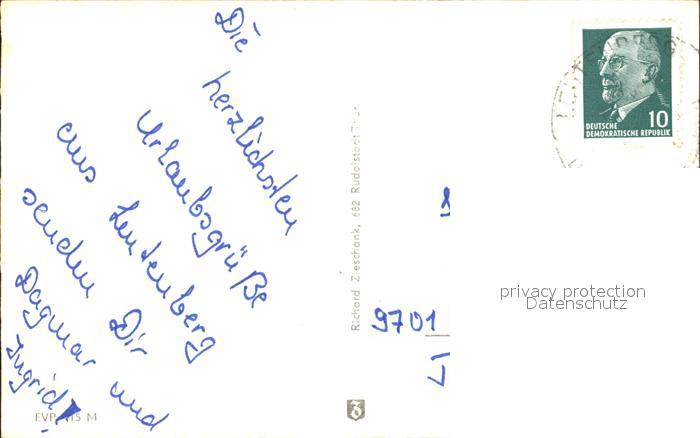 Die
herzlichsten
Urlaubsgrüße
aus Leutenberg
senden Dir
Dagmar und
Ingrid!
EVP 15 M
Richard Zieschank, 682 Rudolstadt Thür.
9701
DEUTSCHE
DEMOKRATISCHE REPUBLIK
10
LEUTENBERG
privacy protection
Datenschutz